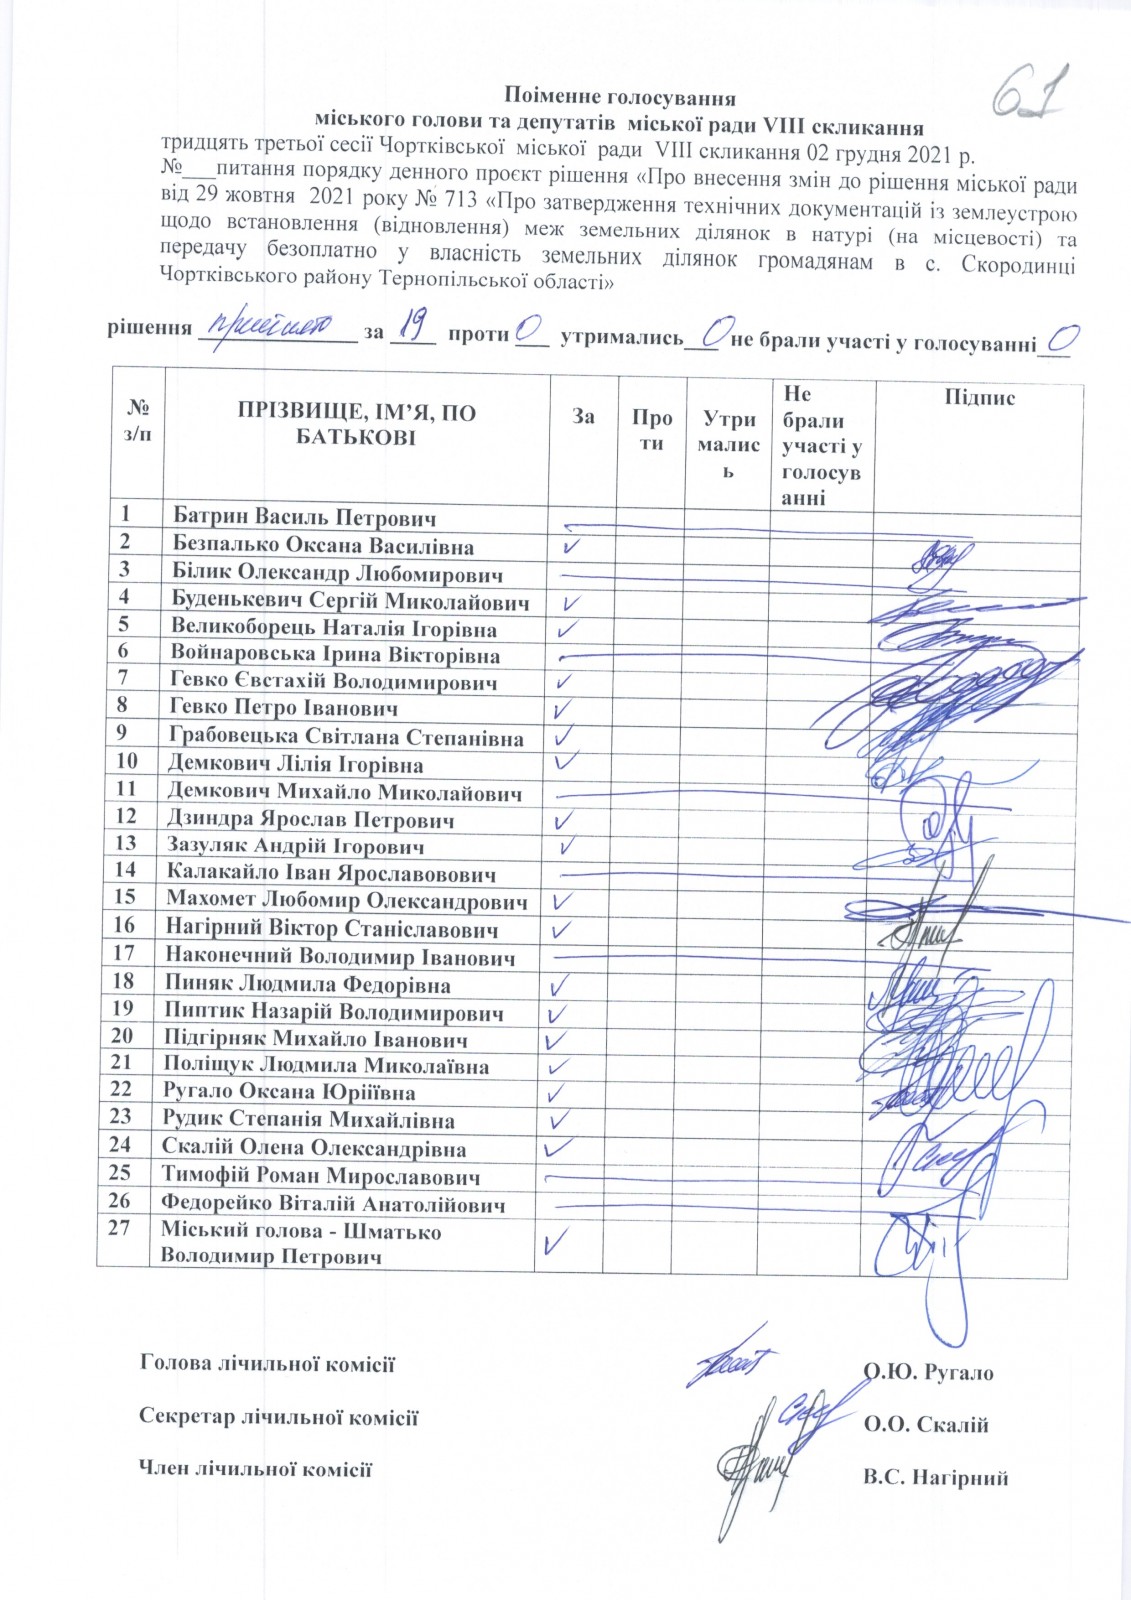 61
Поіменне голосування
міського голови та депутатів міської ради VIII скликання
тридцять третьої сесії Чортківської міської ради VIII скликання 02 грудня 2021 р.
№___питання порядку денного проєкт рішення «Про внесення змін до рішення міської ради
від 29 жовтня 2021 року № 713 «Про затвердження технічних документацій із землеустрою
щодо встановлення (відновлення) меж земельних ділянок в натурі (на місцевості) та
передачу безоплатно у власність земельних ділянок громадянам в с. Скородинці
Чортківського району Тернопільської області»
рішення прийнято за 19 проти 0 утримались 0 не брали участі у голосуванні 0
№ з/п ПРІЗВИЩЕ, ІМ’Я, ПО БАТЬКОВІ За Проти Утрималися Не брали участі у голосуванні Підпис
1 Батрин Василь Петрович
2 Безпалько Оксана Василівна ✓
3 Білик Олександр Любомирович
4 Буденькевич Сергій Миколайович ✓
5 Великоборець Наталія Ігорівна ✓
6 Войнаровська Ірина Вікторівна
7 Гевко Євстахій Володимирович ✓
8 Гевко Петро Іванович ✓
9 Грабовецька Світлана Степанівна ✓
10 Демкович Лілія Ігорівна ✓
11 Демкович Михайло Миколайович
12 Дзиндра Ярослав Петрович ✓
13 Зазуляк Андрій Ігорович ✓
14 Калакайло Іван Ярославовович
15 Махомет Любомир Олександрович ✓
16 Нагірний Віктор Станіславович ✓
17 Наконечний Володимир Іванович
18 Пиняк Людмила Федорівна ✓
19 Пиптик Назарій Володимирович ✓
20 Підгірняк Михайло Іванович ✓
21 Поліщук Людмила Миколаївна ✓
22 Ругало Оксана Юріїївна ✓
23 Рудик Степанія Михайлівна ✓
24 Скалій Олена Олександрівна ✓
25 Тимофій Роман Мирославович
26 Федорейко Віталій Анатолійович
27 Міський голова - Шматько
Володимир Петрович ✓
Голова лічильної комісії О.Ю. Ругало
Секретар лічильної комісії О.О. Скалій
Член лічильної комісії В.С. Нагірний